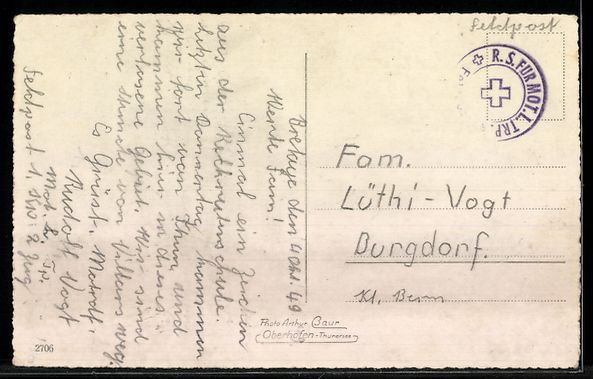 Feldpost
R. S. FÜR MOT. L. TRP.
Bretaye den 4 Okt. 49
Werte Fam!
Einmal ein Zeichen
aus der Rekrutenschule.
letztin Donnerstag kommen
wir fort von Thun und
kommen hier in dieses
verlassene Gebiet. Wir sind
eine Stunde von Villars weg.
Es Grüsst. Motrdf.
Rudolf Vogt
Mot. L. Trp.
Feldpost 1. Kp. 2 Zug
Fam.
Lüthi-Vogt
Burgdorf.
Kt. Bern
Photo Arthur Baur
Oberhofen-Thunersee
2706